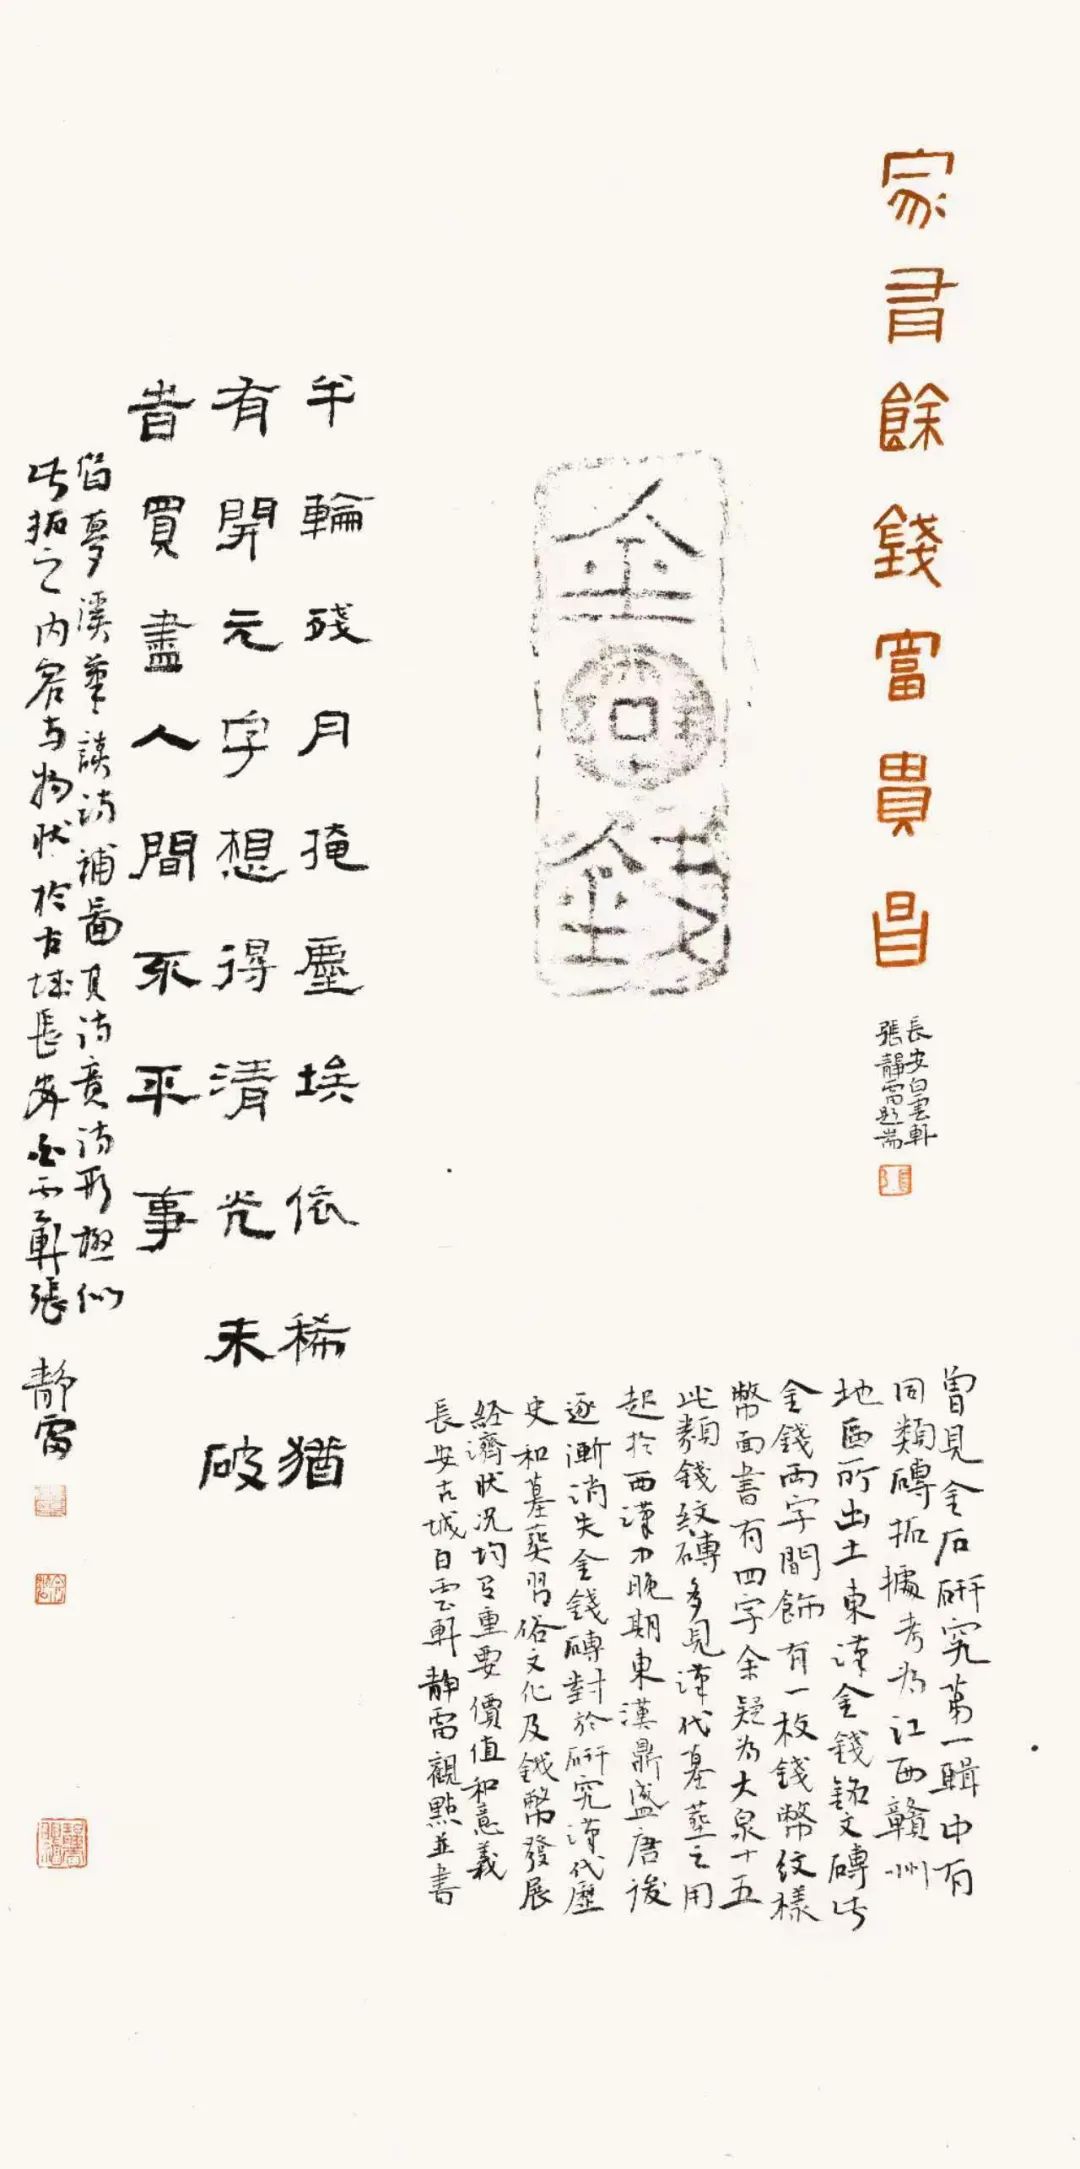 家書餘錢富貴昌
長安白雲軒
張靜雷題耑
金
錢
曾見金石研究第一輯中有
同類磚拓據考為江西贛州
地區所出土東漢金錢銘文磚此
金錢兩字間飾有一枚錢幣紋樣
幣面書有四字余疑為大泉十五
此類錢紋磚多見漢代墓葬之用
起於西漢中晚期東漢鼎盛唐後
逐漸消失金錢磚對於研究漢代歷
史和墓葬習俗文化及錢幣發展
經濟狀況均有重要價值和意義
長安古城白雲軒靜雷觀點並書
半輪殘月掩塵埃依稀猶
有開元字想得清光未破
旹買盡人間不平事
借夢溪筆談詩補圖其詩意詩形極似
此拓之內容與物狀於古城長安白雲軒張靜雷